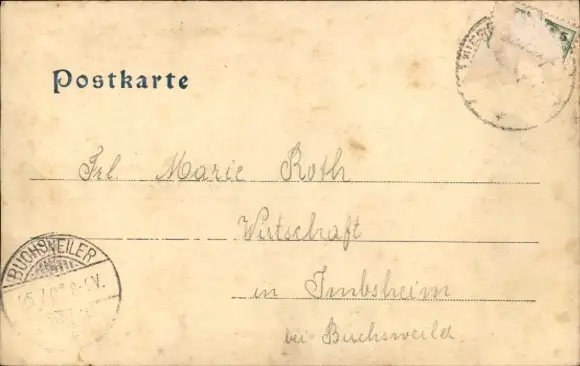 Postkarte
Frl Marie Roth
Wirtschaft
in Imbsheim
bei Buchsweiler
BUCHSWEILER